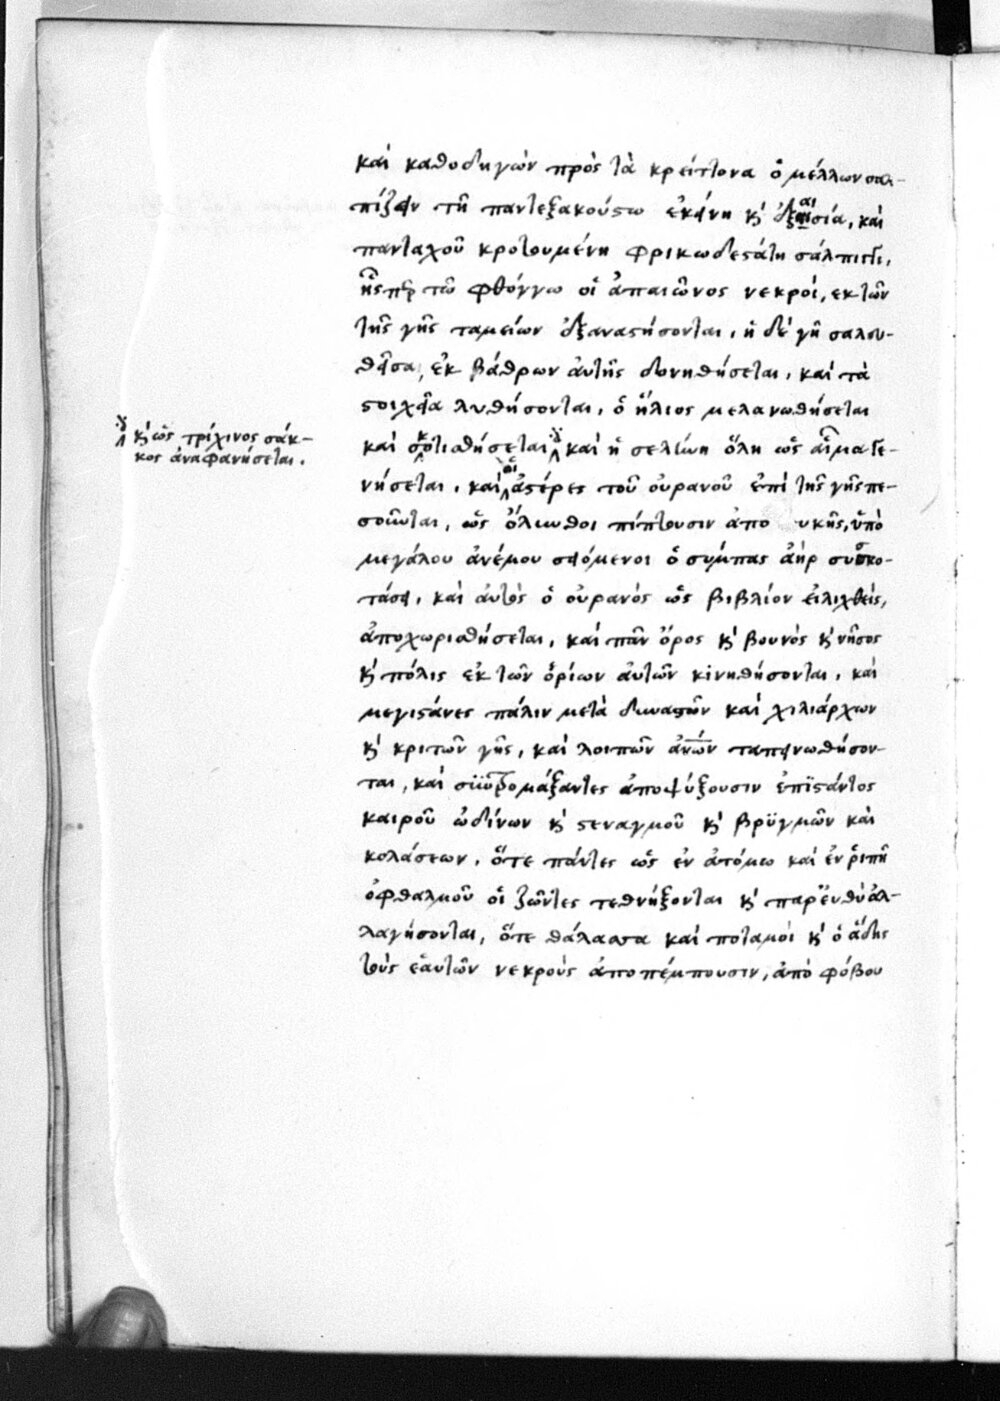 καὶ καθοδηγῶν πρὸς τὰ κρείττονα ὁ μέλλων σαλ-
πίζειν τῇ παντεξακούστω ἐκείνη κ̀ ἐξαισία, καὶ
πανταχοῦ κροτουμένη φρικωδεστάτη σάλπιγγι,
ἧς πρ τῶ φθόγγω οἱ ἀπαιῶνος νεκροί, εκ τῶν
τῆς γῆς ταμείων ἐξαναστήσονται, ἡ δὲ γῆ σαλου-
θεῖσα, ἐκ βάθρων ἀυτῆς δονηθήσεται, καὶ τὰ
στοιχεῖα λυθήσονται, ὁ ἥλιος μελανωθήσεται
καὶ σκοτισθήσεται καὶ ἡ σελήνη ὅλη ὡς αἷμα γε-
κ̀ ὡς τρίχινος σάκ-
κος ἀναφανήσεται.
νήσεται, καὶ οἱ ἀστέρες τοῦ ουρανοῦ ἐπὶ τῆς γῆς πε-
σοῦνται, ὡς ὄλυνθοι πίπτουσιν ἀπο υκῆς, ὑπὸ
μεγάλου ἀνέμου σειόμενοι ὁ σύμπας ἀὴρ συσκο-
τάσει, καὶ ἀυτὸς ὁ οὐρανὸς ὡς βιβλίον ἐιλιχθεὶς,
ἀποχωρισθήσεται, καὶ πᾶν ὄρος κ̀ βουνὸς κ̀ νῆσος
κ̀ πόλις εκ τῶν ὁρίων ἀυτῶν κινηθήσονται, καὶ
μεγιστάνες πάλιν μετὰ δυναστῶν καὶ χιλιάρχων
κ̀ κριτῶν γῆς, καὶ λοιπῶν ἀνῶν ταπεινωθήσον-
ται, καὶ ἀποψύξουσιν ἐπιστάντος
καιροῦ ὠδίνων κ̀ στεναγμοῦ κ̀ βρυγμῶν καὶ
κολάσεων, ὅτε πάντες ὡς ἐν ἀτόμω καὶ ἐν ῥιπῆ
ὀφθαλμοῦ οἱ ζῶντες τεθνήξονται κ̀ παρευθὺ ἀλ-
λαγήσονται, ὅτε θάλασσα καὶ ποταμοὶ κ̀ ὁ ἅδης
τοὺς ἑαυτῶν νεκροὺς ἀποπέμπουσιν, ἀπὸ φόβου